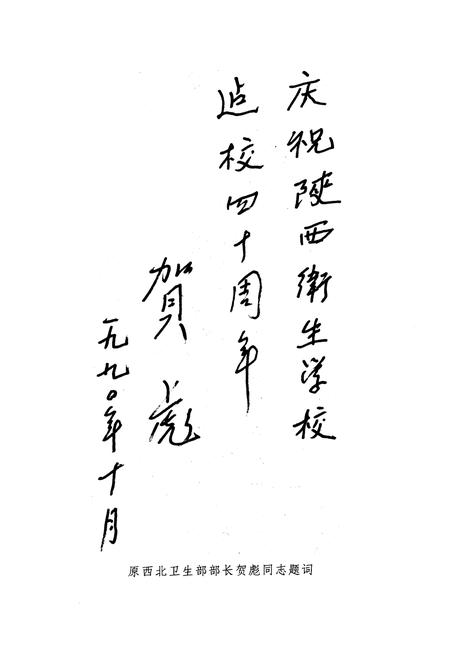 庆祝陕西衛生学校
迠校四十周年
賀彪
一九九〇年十月
原西北卫生部部长贺彪同志题词